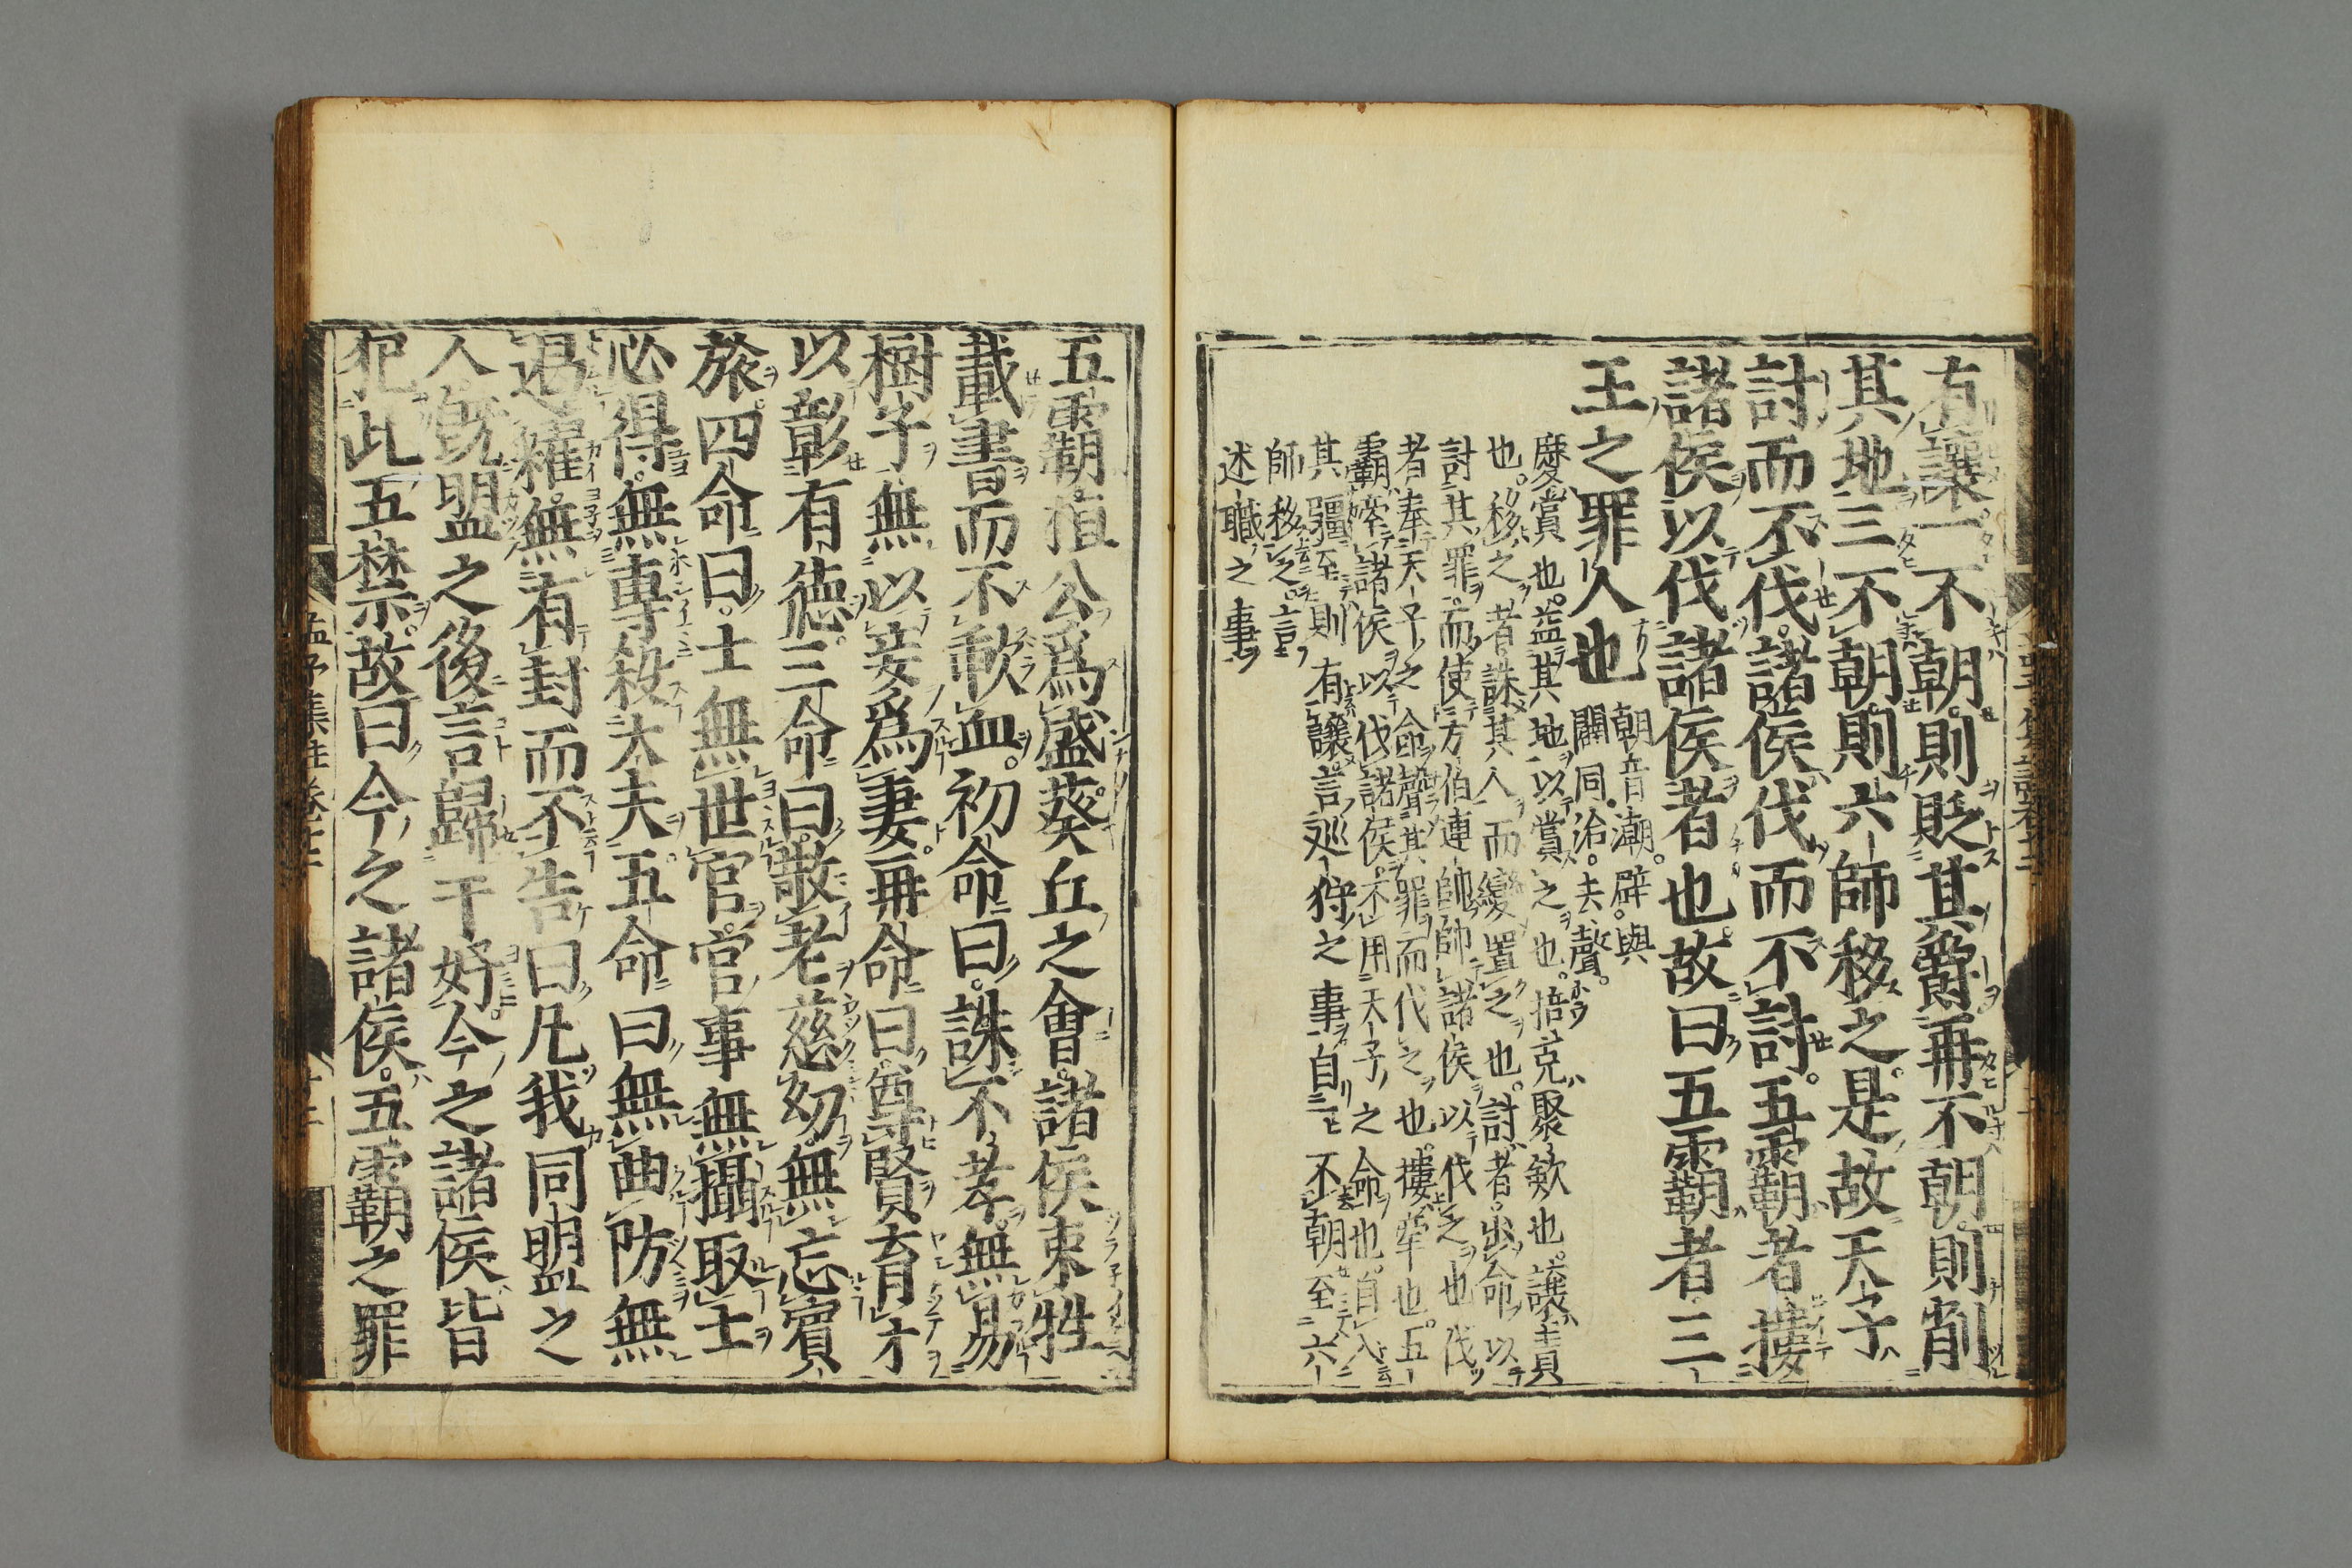 有讓一不朝則貶其爵再不朝則削
其地三不朝則六師移之是故天子
討而不伐諸侯伐而不討五霸者摟
諸侯以伐諸侯者也故曰五霸者三
王之罪人也
朝音潮。辟與
闢同。治。去聲。
慶賞也。益其地以賞之也。掊克聚歛也。讓責
也。移之者誅其人而變置之也。討者出命以
討其罪。而使方伯連帥帥諸侯以伐之也伐
者奉天子之命聲其罪而伐之也。摟牽也。五
霸牽諸侯以伐諸侯。不用天子之命也。自入
其疆至則有讓言巡狩之事自不朝至六
師移之言
述職之事
五霸桓公爲盛葵丘之會。諸侯束牲
載書而不歃血。初命曰。誅不孝。無易
樹子。無以妾爲妻。再命曰。尊賢育才
以彰有德。三命曰。敬老慈幼。無忘賓
旅。四命曰。士無世官。官事無攝取士
必得。無專殺大夫。五命曰。無曲防。無
遏糴。無有封而不告。曰凡我同盟之
人旣盟之後言歸于好。今之諸侯皆
犯此五禁。故曰今之諸侯。五霸之罪
孟子集註卷十二